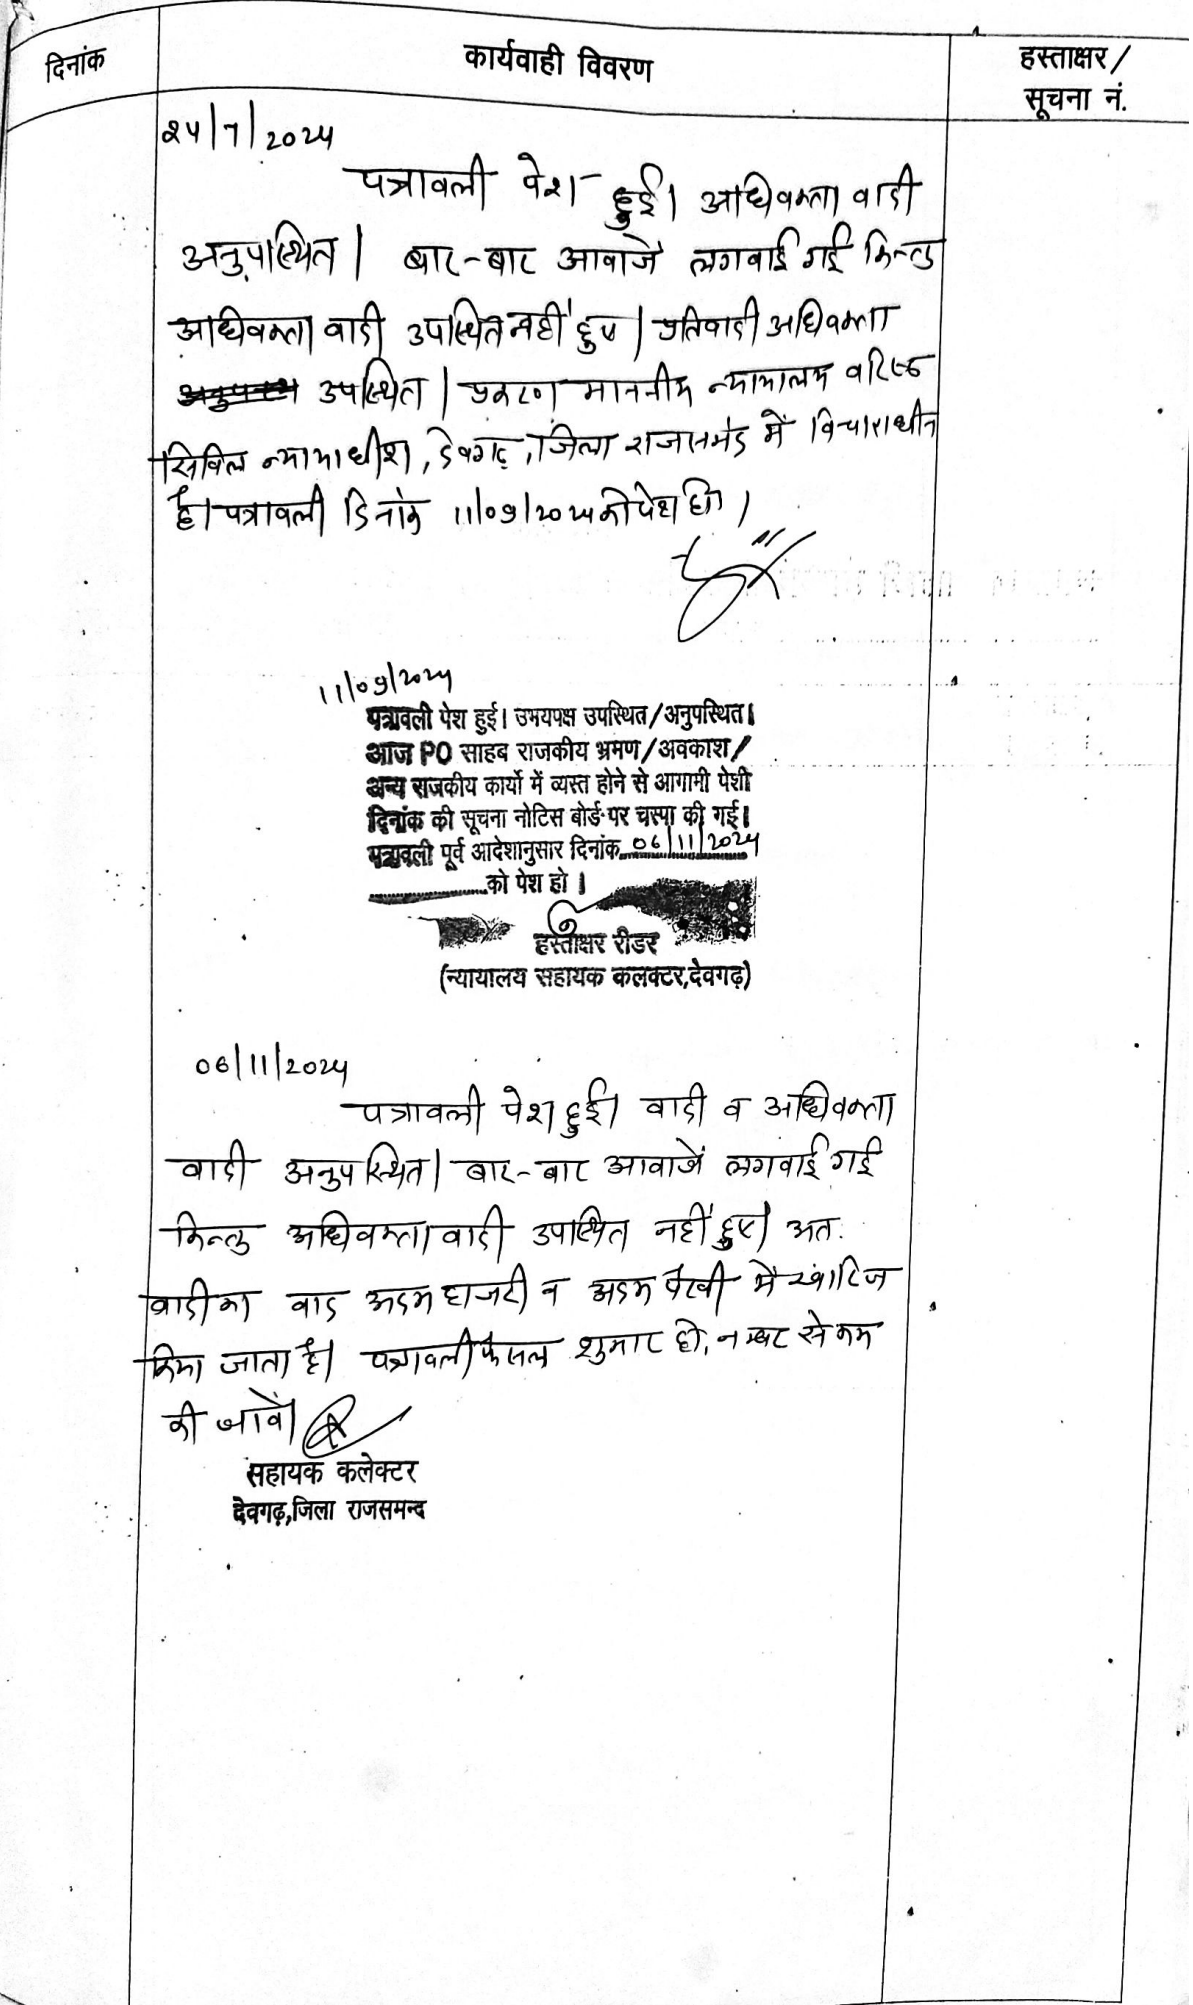 दिनांक
कार्यवाही विवरण
हस्ताक्षर/
सूचना नं.
२५/7/2024
पत्रावली पेश हुई। अधिवक्ता वादी
अनुपस्थित। बार-बार आवाजें लगवाई गई किन्तु
अधिवक्ता वादी उपस्थित नहीं हुए। प्रतिवादी अधिवक्ता
उपस्थित। प्रकरण माननीय न्यायालय वरिष्ठ
सिविल न्यायाधीश, देवगढ़, जिला राजसमंद में विचाराधीन
है। पत्रावली दिनांक 11/09/2024 को पेश हो।
11/09/2024
पत्रावली पेश हुई। उभयपक्ष उपस्थित/अनुपस्थित।
आज PO साहब राजकीय भ्रमण/अवकाश/
अन्य राजकीय कार्यो में व्यस्त होने से आगामी पेशी
दिनांक की सूचना नोटिस बोर्ड पर चस्पा की गई।
पत्रावली पूर्व आदेशानुसार दिनांक 06/11/2024
को पेश हो।
हस्ताक्षर रीडर
(न्यायालय सहायक कलक्टर,देवगढ़)
06/11/2024
पत्रावली पेश हुई। वादी व अधिवक्ता
वादी अनुपस्थित। बार-बार आवाजें लगवाई गई
किन्तु अधिवक्ता वादी उपस्थित नहीं हुए। अत:
वादी का वाद अदम हाजरी व अदम पैरवी में खारिज
किया जाता है। पत्रावली फैसल शुमार हो, नम्बर से कम
की जावें।
सहायक कलेक्टर
देवगढ़,जिला राजसमन्द